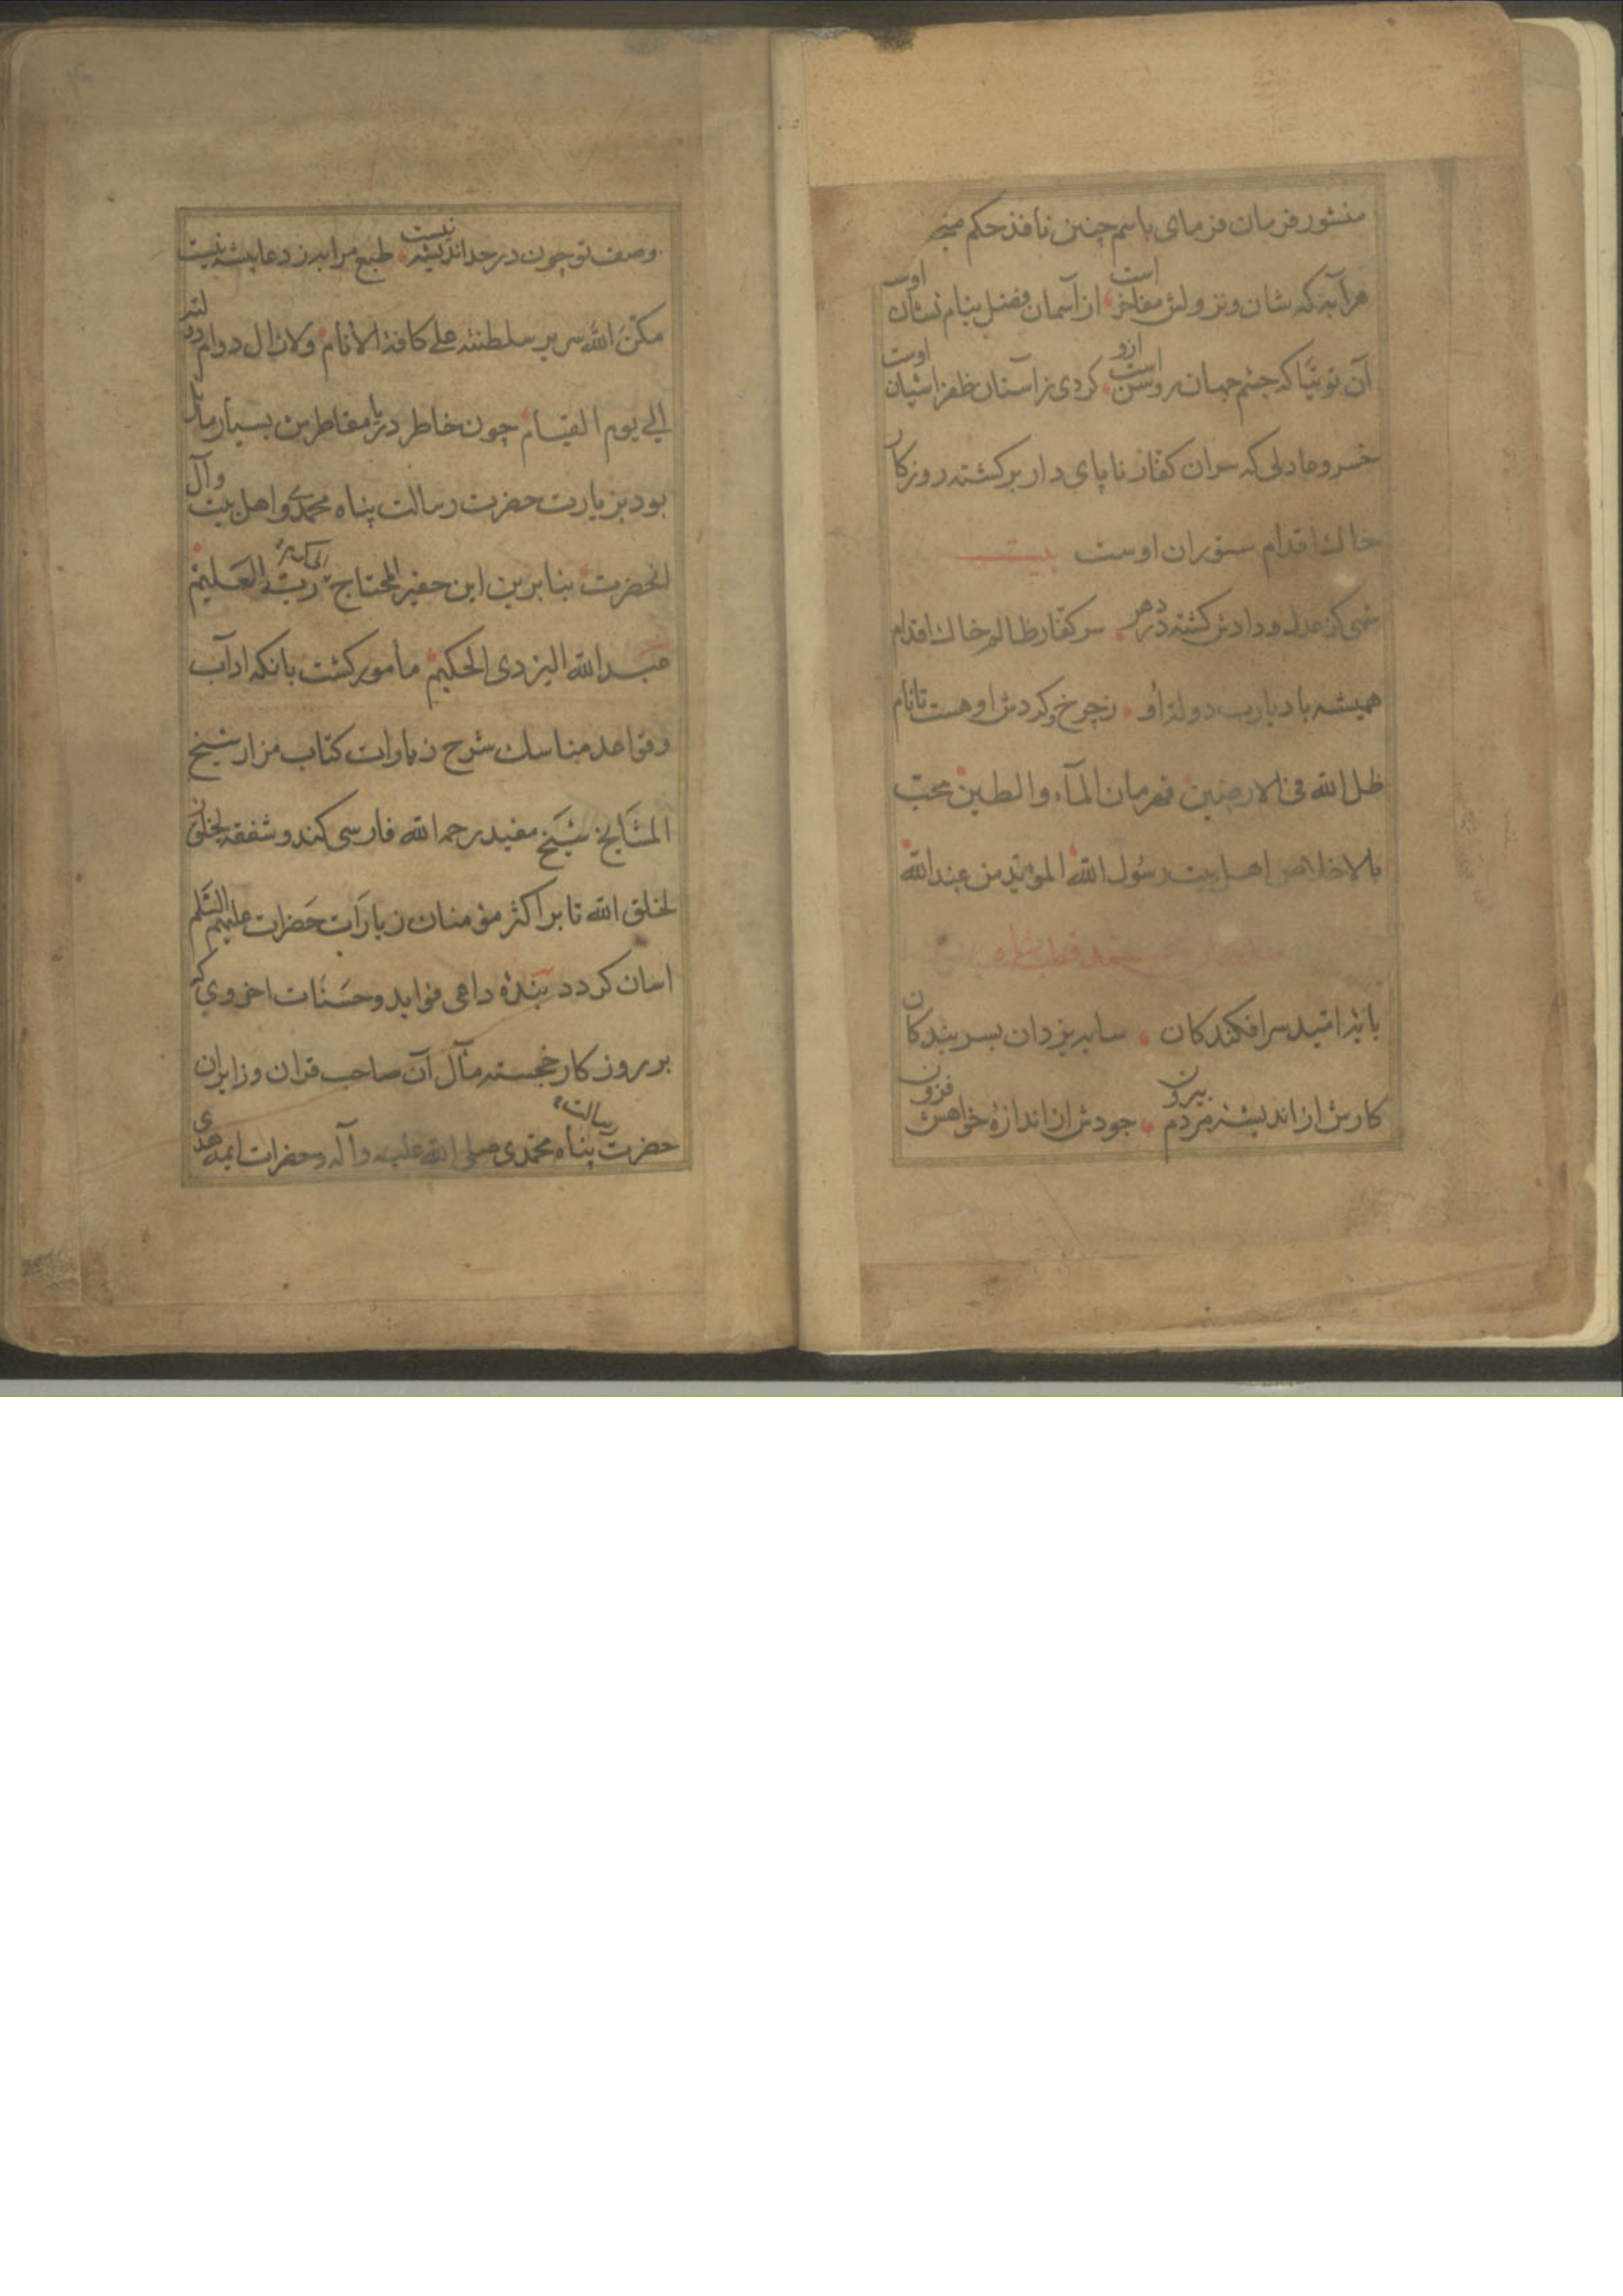 منشور فرمان فرمای باسم چنین نافذ حکم
هر آیه که شان و نزولش مفاخر است از آسمان فضل بنام نشان اوست
آن توتیا که چشم جهان روشن است ازو کردی ز آستان ظفر اشیان اوست
خسرو عادلی که سران کفار ناپای دار برکشته روزکار
خاك اقدام ستوران اوست بیت
شهی کز عدل و دادش کشته در دهر سر کفار ظالم خاك اقدام
همیشه باد یارب دولة او ز چرخ و کردش او هست تا نام
ظل الله فی الارضین قهرمان المآء والطین محب
بالاخلاص اهل بیت رسول الله الموید من عند الله
سلطان محمد قطبشاه
پایه امید سرافکندکان سایه یزدان بسر بندکان
کارش از اندیشه مردم بیرون جودش از اندازهٔ خواهش فزون
وصف تو چون در حد اندیشه نیست طبع مرا به ز دعا پیشه نیست
مکن الله سریر سلطنته علی کافة الانام ولازال دوام دولته
الی یوم القیام چون خاطر دریا مقاطرین بسیار مایل
بود بزیارت حضرت رسالت پناه محمدی و اهل بیت وآل
انحضرت بنابرین این حقیر المحتاج الی رب العلیم
عبد الله الیزدی الحکیم مأمور کشت بانکه اداب
وقواعد مناسك شرح زیاوات کتاب مزار شیخ
المشایخ شیخ مفید رحمه الله فارسی کند و شفقة لخلق
لخلق الله تا بر اکثر مؤمنان زیارات حضرات علیهم السلم
اسان کردد بندهٔ داعی فواید و حسنات اخروی که
بر روزکار خجسته مآل آن صاحب قران و زایران
حضرت رسالت پناه محمدی صلی الله علیه وآله و حضرات ایمه هدی